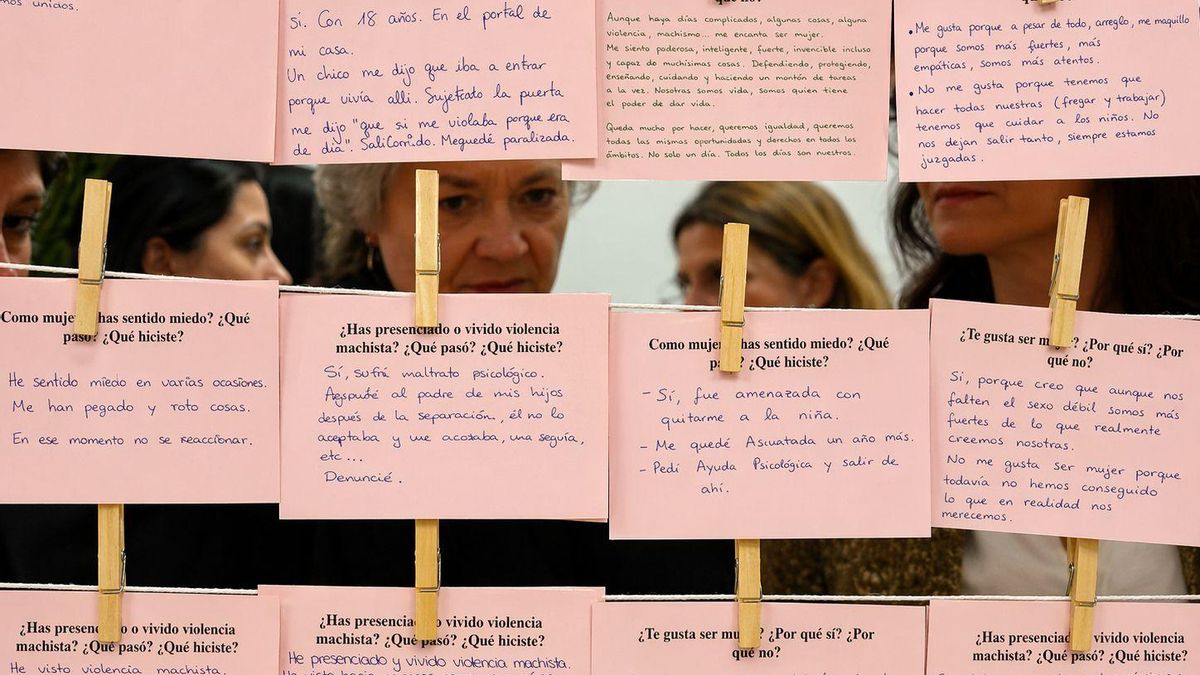 mos unidos.
Sí. Con 18 años. En el portal de
mi casa.
Un chico me dijo que iba a entrar
porque vivía alli. Sujetcato la puerta
me dijo "que si me violaba porque era
de día". SaliCorrido. Meguedé paralizada.
qué no?
Aunque haya días complicados, algunas cosas, alguna
violencia, machismo... me encanta ser mujer.
Me siento poderosa, inteligente, fuerte, invencible incluso
y capaz de muchísimas cosas. Defendiendo, protegiendo,
enseñando, cuidando y haciendo un montón de tareas
a la vez. Nosotras somos vida, somos quien tiene
el poder de dar vida.
Queda mucho por hacer, queremos igualdad, queremos
todas las mismas oportunidades y derechos en todos los
ámbitos. No solo un día. Todos los días son nuestros.
• Me gusta porque a pesar de todo, arreglo, me maquillo
porque somos más fuertes, más
empáticas, somos más atentos.
• No me gusta porque tenemos que
hacer todas nuestras (fregar y trabajar)
tenemos que cuidar a los niños. No
nos dejan salir tanto, siempre estamos
juzgadas.
Como mujer has sentido miedo? ¿Qué
pasó? ¿Qué hiciste?
He sentido miedo en varias ocasiones.
Me han pegado y roto cosas.
En ese momento no se reaccionar.
¿Has presenciado o vivido violencia
machista? ¿Qué pasó? ¿Qué hiciste?
Sí, sufrá maltrato psicológico.
Agsputé al padre de mis hijos
después de la separación, él no lo
aceptaba y me acosaba, una seguía,
etc...
Denuncié.
Como mujer has sentido miedo? ¿Qué
¿Qué hiciste?
- Sí, fue amenazada con
quitarme a la niña.
- Me quedé Asuatada un año más.
- Pedí Ayuda Psicológica y salir de
ahí.
¿Te gusta ser ¿Por qué sí? ¿Por
qué no?
Si, porque creo que aunque nos
falten el sexo débil somos más
fuertes de lo que realmente
creemos nosotras.
No me gusta ser mujer porque
todavía no hemos conseguido
lo que en realidad nos
merecemos.
¿Has presenciado o vivido violencia
machista? ¿Qué pasó? ¿Qué hiciste?
He visto violencia machista.
¿Has presenciado o vivido violencia
machista? ¿Qué pasó? ¿Qué hiciste?
He presenciado y vivido violencia machista.
¿Te gusta ser ¿Por qué sí? ¿Por
qué no?
¿Has presenciado vivido violencia
machista? ¿Qué pasó? ¿Qué hiciste?